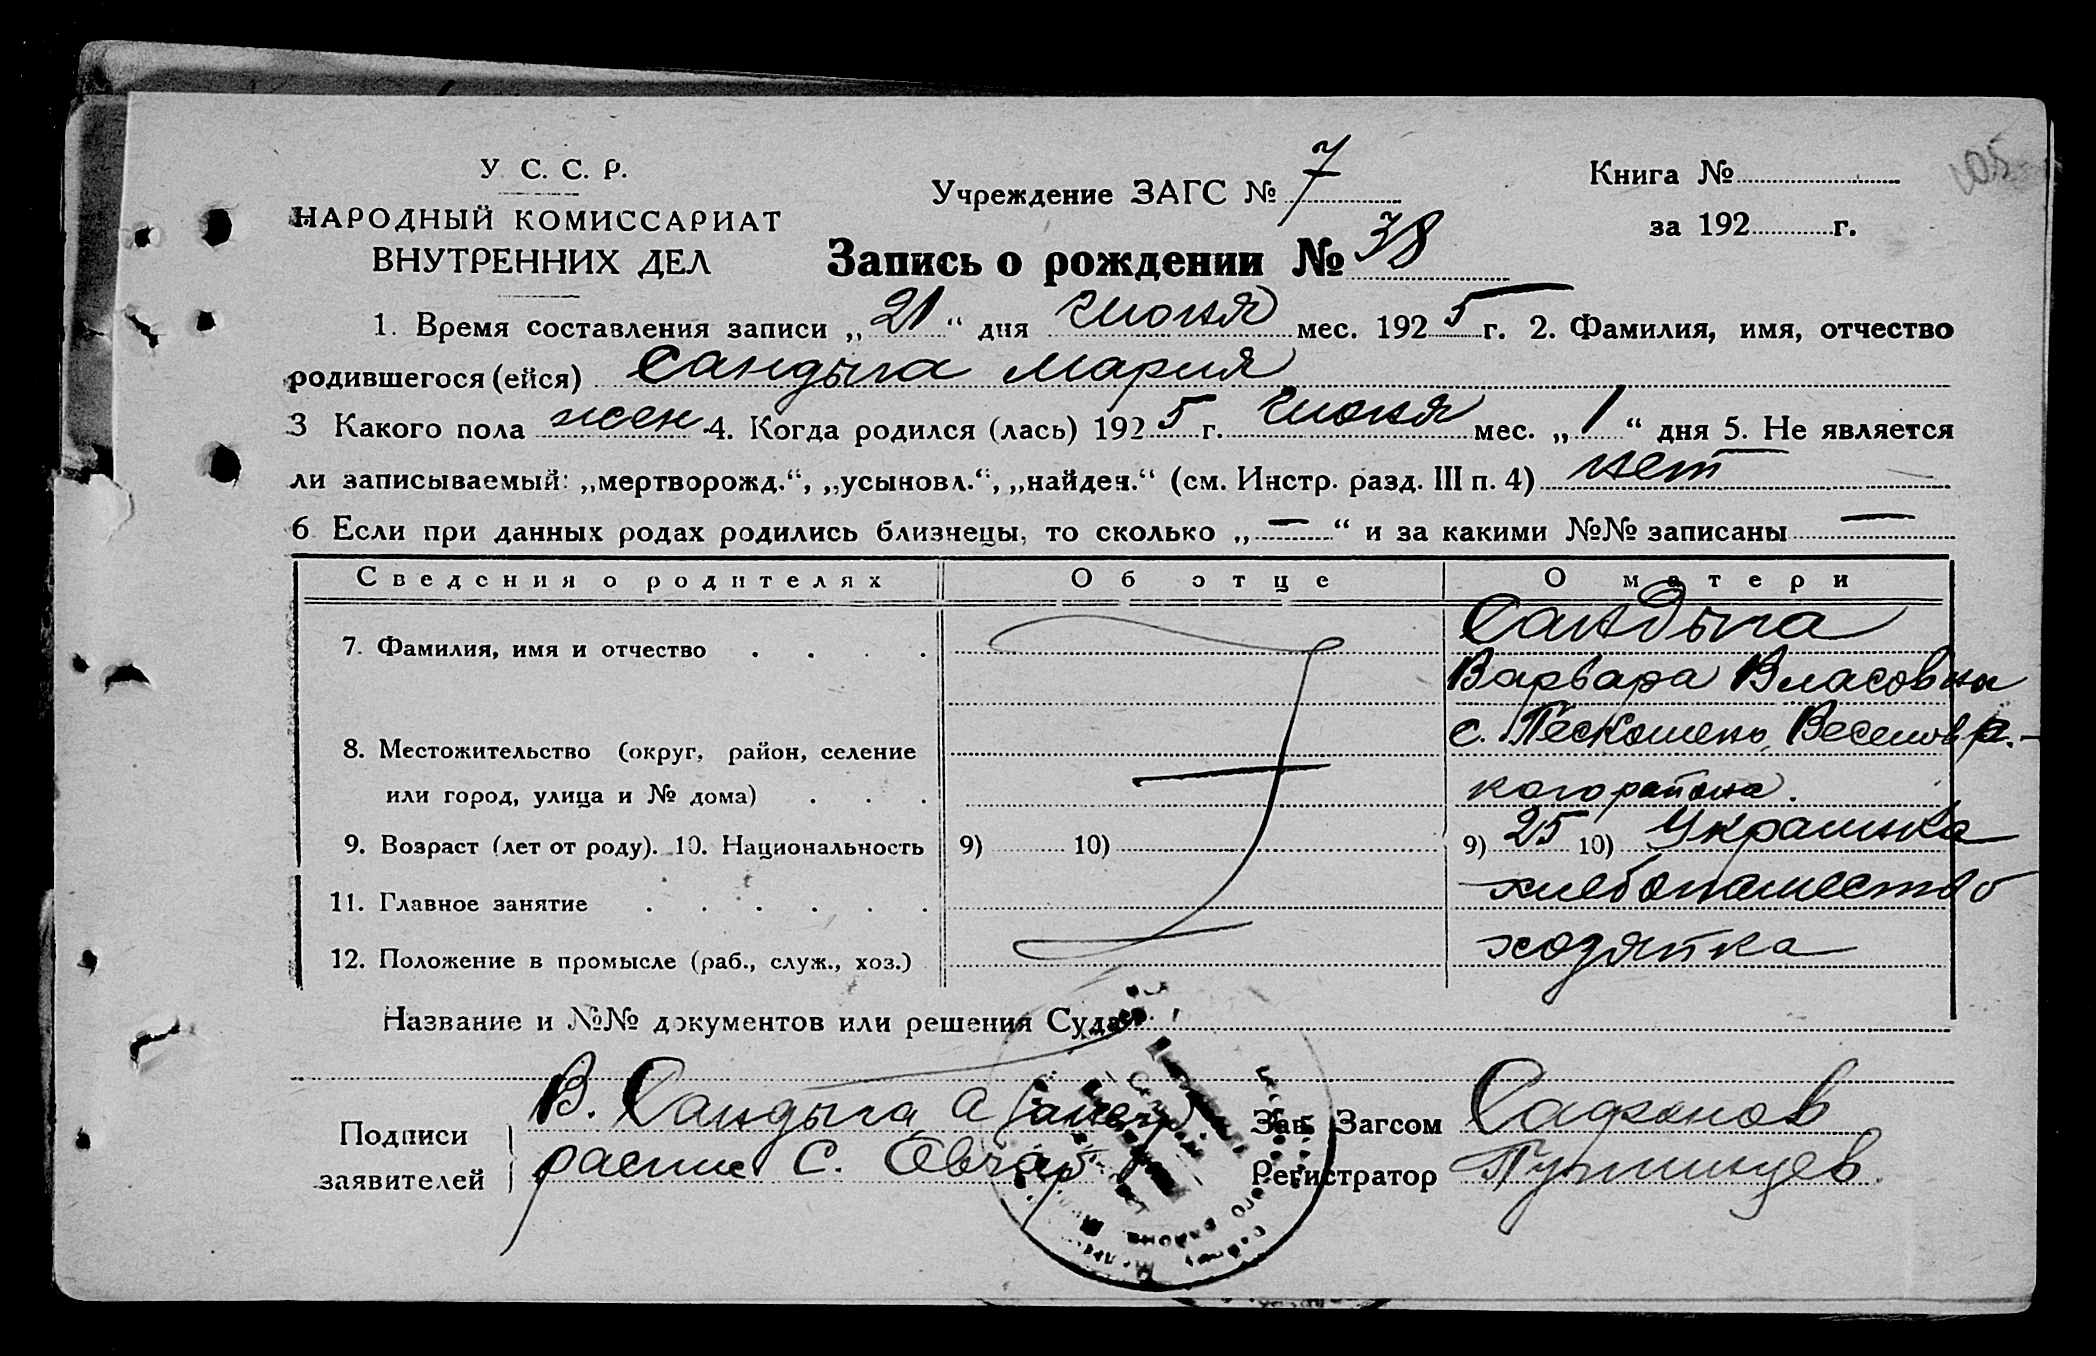 105
У С. С. Р.
НАРОДНЫЙ КОМИССАРИАТ
ВНУТРЕННИХ ДЕЛ
Учреждение ЗАГС № 7
Книга №
за 192 г.
Запись о рождении № 38
1. Время составления записи „21“ дня Июня мес. 1925 г. 2. Фамилия, имя, отчество
родившегося (ейся) Сандыга Мария
3 Какого пола жен 4. Когда родился (лась) 1925 г. Июня мес. „1“ дня 5. Не является
ли записываемый: „мертворожд.“, „усыновл.“, „найден.“ (см. Инстр. разд. III п. 4) нет
6 Если при данных родах родились близнецы, то сколько „—“ и за какими №№ записаны —
Сведения о родителях Об отце О матери
7. Фамилия, имя и отчество Сандыга
Варвара Власовна
8. Местожительство (округ, район, селение с. Пескошено, Веселов
или город, улица и № дома) кого района.
9. Возраст (лет от роду). 10. Национальность 9) 10) 9) 25 10) Украинка
11. Главное занятие хлебопашество
12. Положение в промысле (раб., служ., хоз.) хозяйка
Название и №№ документов или решения Суда
Подписи заявителей
В. Сандыга, а
распис С. Овчар
Зав. Загсом Сафонов
Регистратор